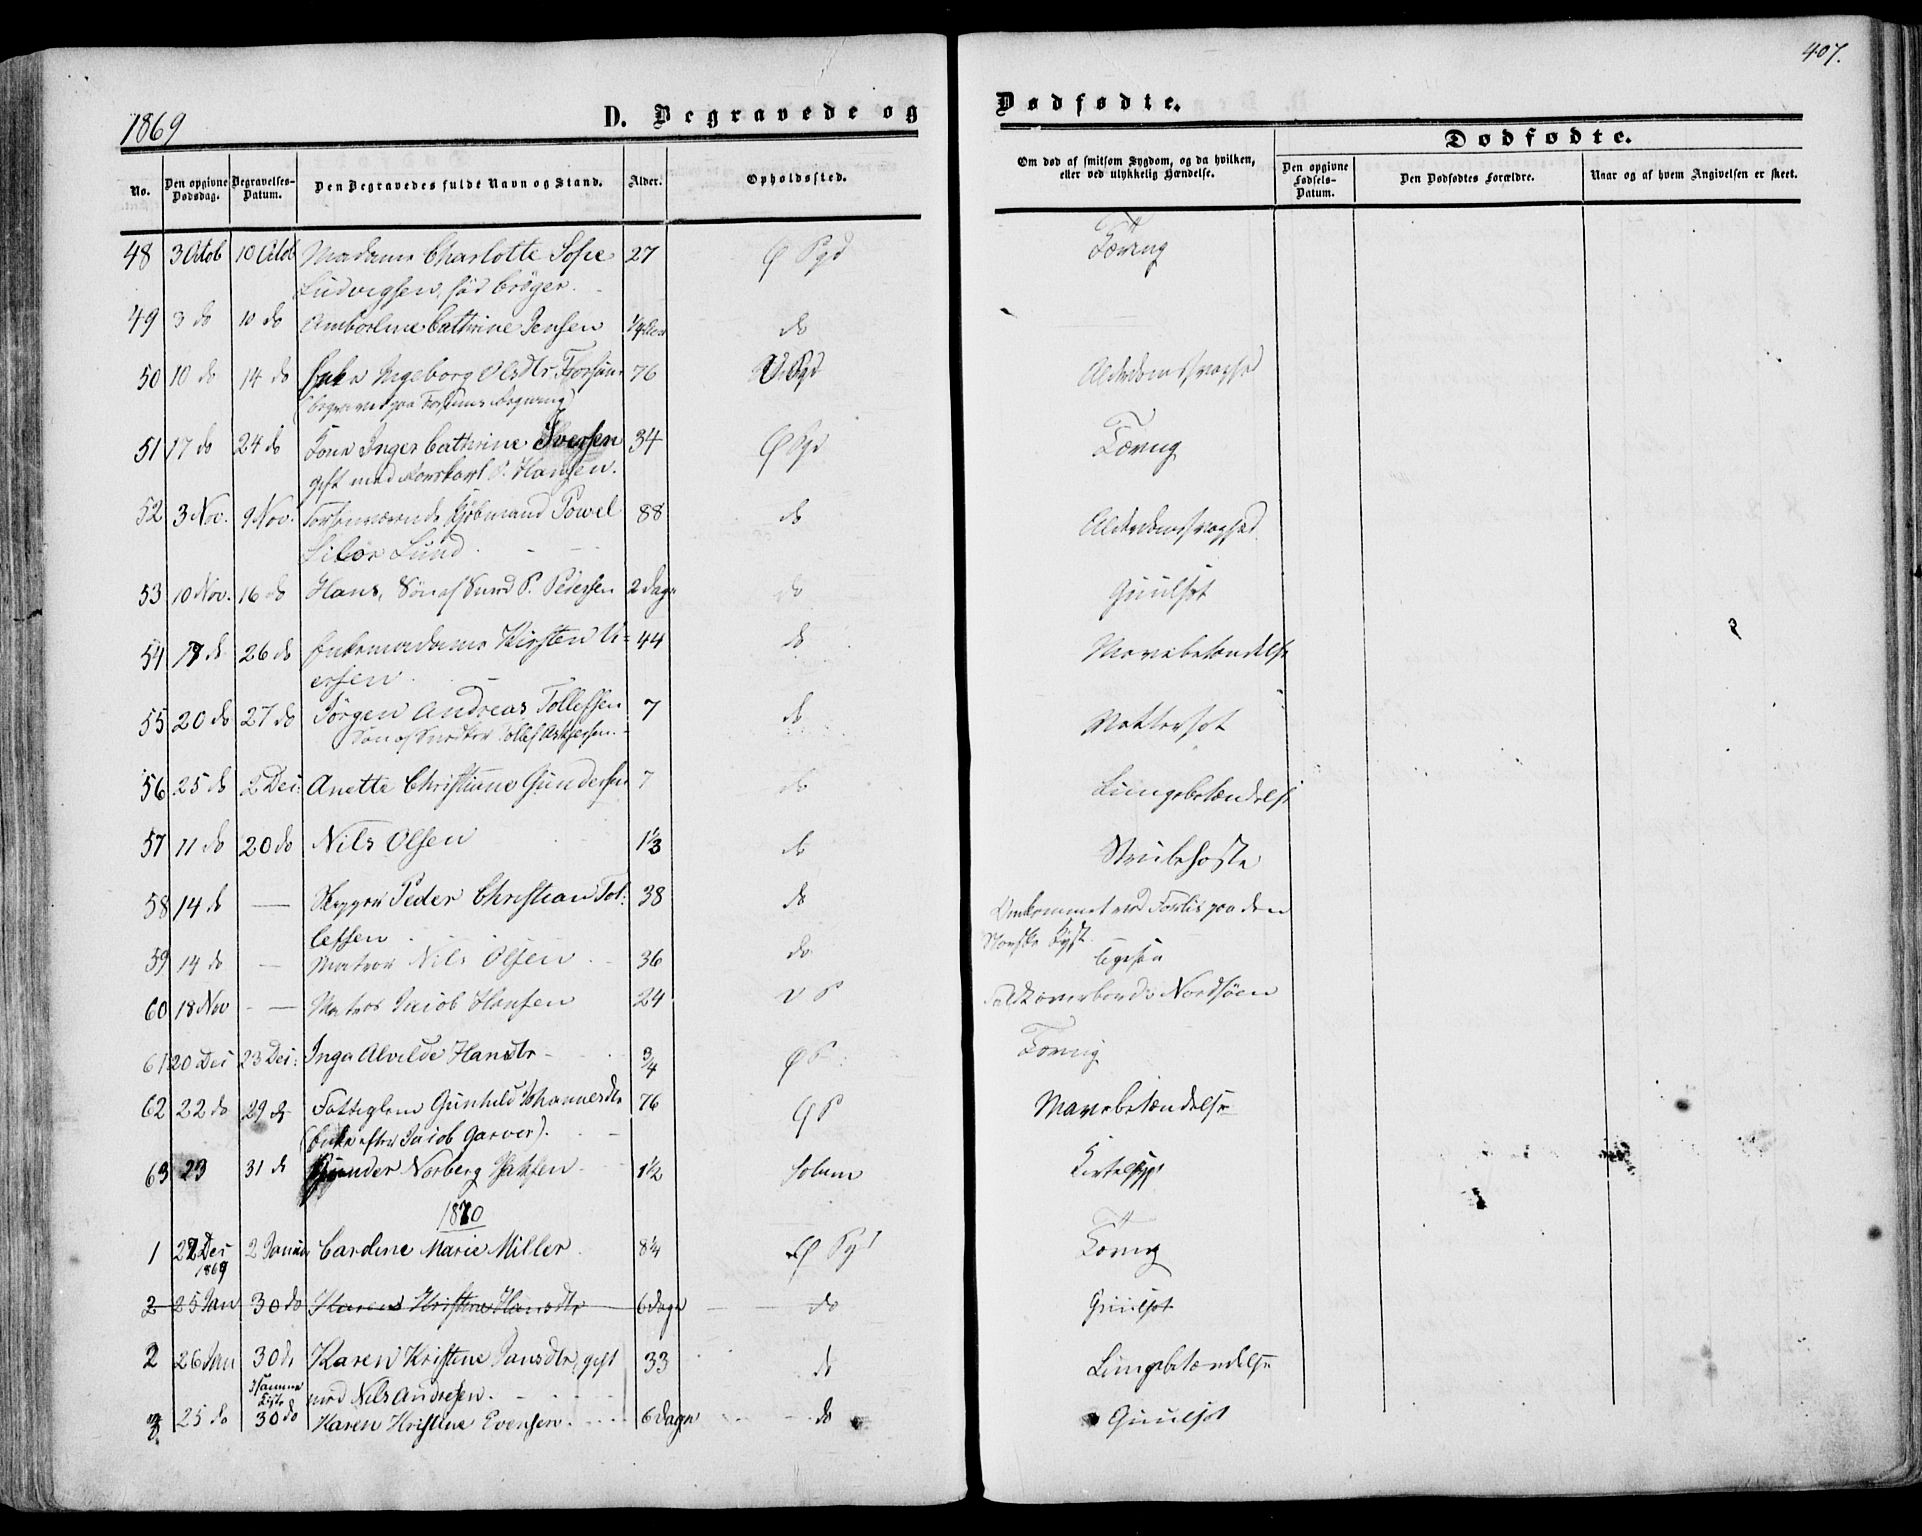 407.
1869
D. Begravede og
Dødfødte.
No.
Den opgivne Dødsdag.
Begravelses-Datum.
Den Begravedes fulde Navn og Stand.
Alder.
Opholdssted.
Om død af smitsom Sygdom, og da hvilken, eller ved ulykkelig Hændelse.
Dødfødte.
Den opgivne Fødsels-Datum.
Den Dødfødtes Forældre.
Naar og af hvem Angivelsen er skeet.
48 3 Octob 10 Octob Madame Charlotte Sofie 27 Ø Bgd Tæring
Ludvigsen, fød Crøger.
49 3 do 10 do Cathrine Jensen do
50 10 do 14 do Enke Ingeborg Olsdtr. 76 V. Bgd Alderdomssvaghed
51 17 do 24 do Kone Inger Cathrine Iversen 34 Ø Bgd Tæring
gift med P. Hansen.
52 3 Nov. 9 Nov. Forhenværende Kjøbmand Powel 88 do Alderdomssvaghed
Lund
53 10 Nov. 16 do Hans, Søn af Smed P. Pedersen 2 Dage do Guulsot
54 17 do 26 do Enkemadame Kirsten 44 do Mavebetændelse
ersen.
55 20 do 27 do Jörgen Andreas Tollefsen 7 do Vattersot
Søn af Snedker Tollef
56 25 do 2 Dec: Anette Christiane Gundersen 7 do Lungebetændelse
57 11 do 20 do Nils Olsen 1 1/3 do Strubehoste
58 14 do — Skipper Peder Christian Tol- 38 do Omkommet ved Forlis paa den
lefsen Norske Kyst.
59 14 do — Matros Nils Olsen 36 do ligesaa
60 18 Nov — Matros Jacob Hansen 24 V P Faldt overbord i Nordsöen
61 20 Dec 23 Dec: Inga Alvilde Hansdtr 3/4 Ø P: Tæring
62 22 do 29 do Fattiglem Gunhild Johannesdtr 76 Ø P Mavebetændelse
(Enke efter Jacob Garver).
63 23 31 do Gunder Norberg 1 1/2 Solum Kirtelsyge
1870
1 22 Dec 1869 2 Januar Caroline Marie Miller 8 1/4 Ø Bgd Tæring
2 25 Jan 30 do Karen Kristine Hansdtr 6 Dage do Guulsot
2 26 Jan 30 do Karen Kristine Jansdtr, gift 33 do Lungebetændelse
I samme Kiste med Nils Andresen.
3 25 do 30 do Karen Kristine Evensen 6 Dage do Guulsot